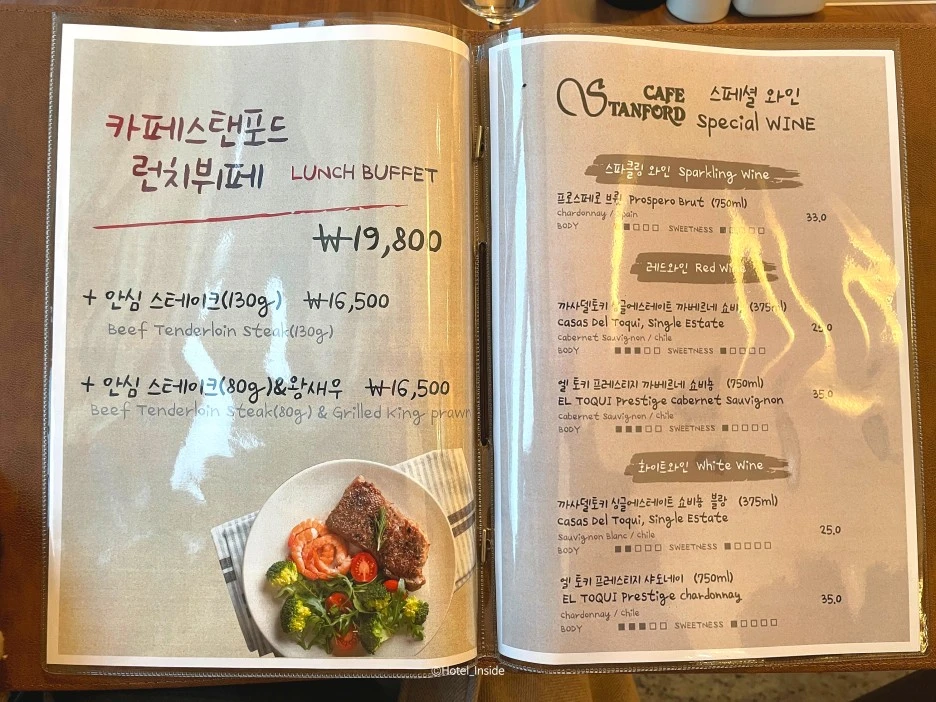 카페스탠포드
런치뷔페 LUNCH BUFFET
₩19,800
+ 안심 스테이크(130g) ₩16,500
Beef Tenderloin Steak(130g)
+ 안심 스테이크(80g)&왕새우 ₩16,500
Beef Tenderloin Steak(80g) & Grilled King prawn
CAFE STANFORD
스페셜 와인
Special WINE
스파클링 와인 Sparkling Wine
프로스페로 브륏 Prospero Brut (750ml)
Chardonnay /
33.0
BODY ■□□□ SWEETNESS ■□□□□
레드와인 Red
까사델토키 싱글에스테이트 까베르네 쇼비 (375ml)
Casas Del Toqui, Single Estate
Cabernet Sauvignon / Chile
BODY ■■■□□ SWEETNESS ■□□□□
엘 토키 프레스티지 까베르네 쇼비뇽 (750ml)
35.0
EL TOQUI Prestige Cabernet Sauvignon
Cabernet Sauvignon / Chile
BODY ■■■□□ SWEETNESS ■□□□□
화이트와인 White Wine
까사델토키 싱글에스테이트 쇼비뇽 블랑 (375ml)
Casas Del Toqui, Single Estate
25.0
Sauvignon Blanc / Chile
BODY ■■□□□ SWEETNESS ■□□□□
엘 토키 프레스티지 샤도네이 (750ml)
EL TOQUI Prestige Chardonnay
35.0
Chardonnay / Chile
BODY ■■■□□ SWEETNESS ■□□□□
©Hotel_Inside